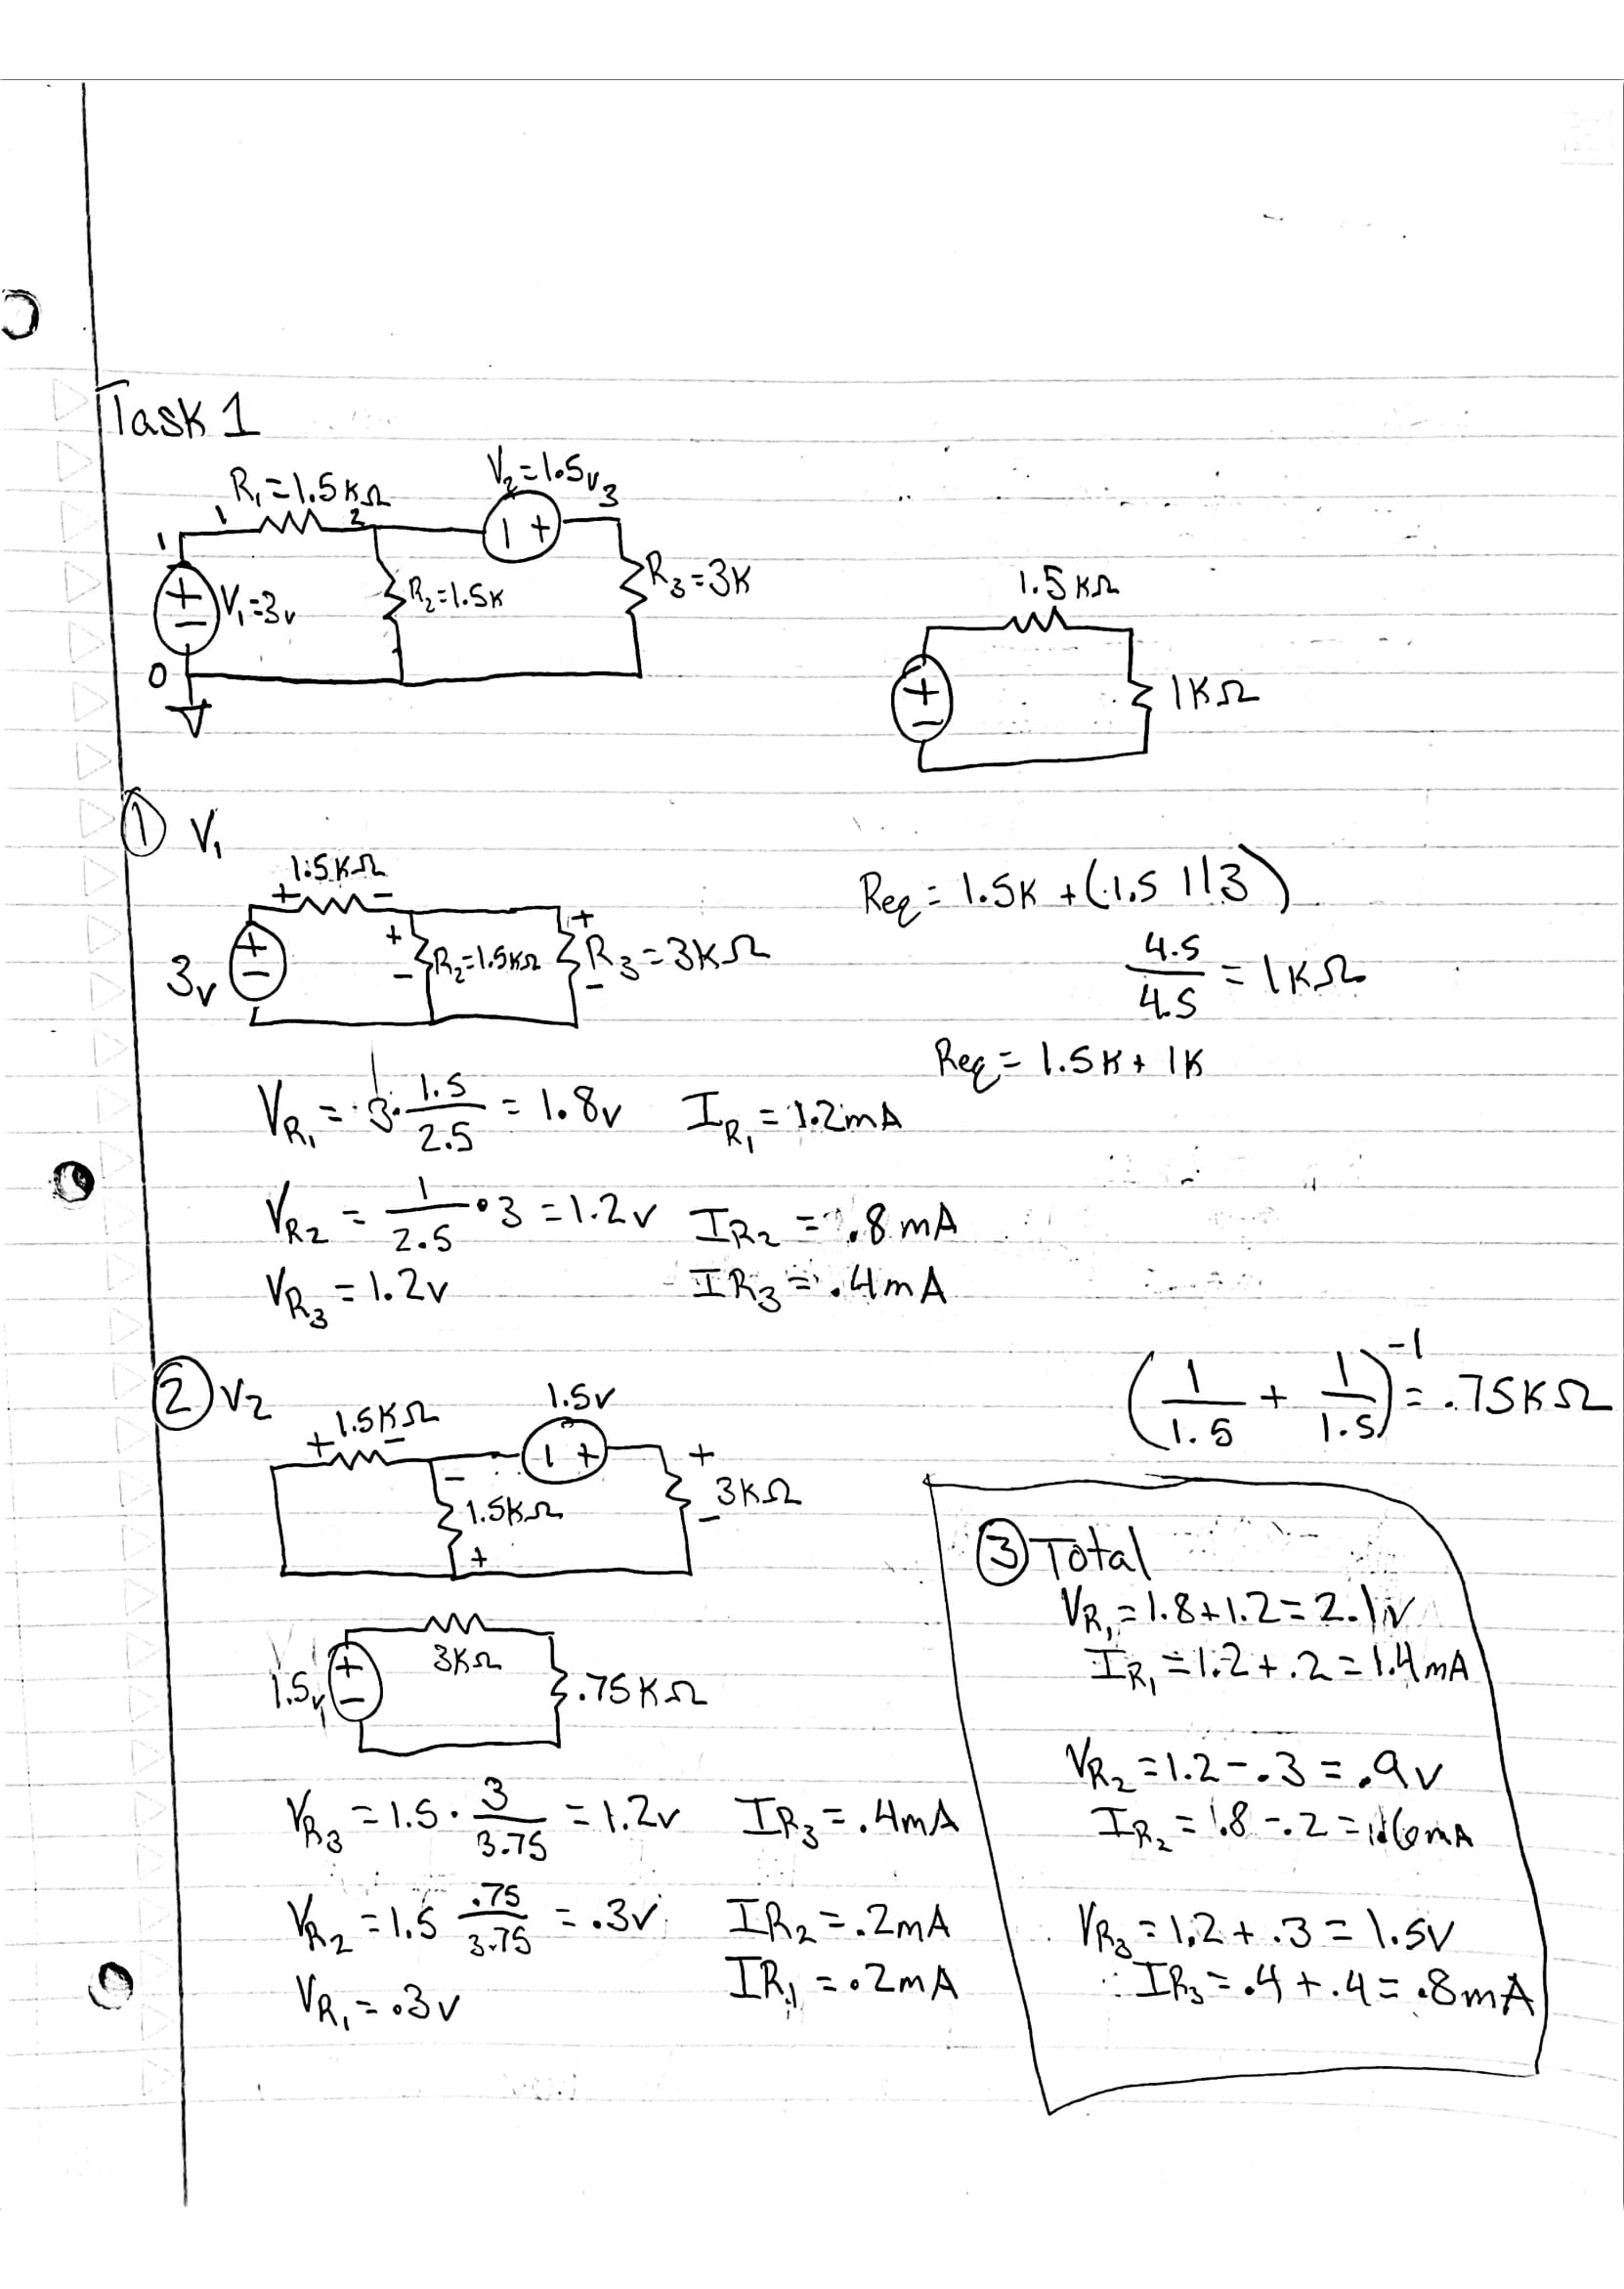 Task 1
R₁=1.5KΩ
V₂=1.5v
1
1
2
3
+
-
V₁=3v
R₂=1.5K
- +
R₃=3K
0
1.5KΩ
+
-
1KΩ
① V₁
1.5KΩ
+ -
3v
+
-
+
-
R₂=1.5KΩ
+
-
R₃=3KΩ
Req = 1.5K + (1.5 || 3)
4.5/4.5 = 1KΩ
Req = 1.5K + 1K
VR₁ = 3 · 1.5/2.5 = 1.8v IR₁ = 1.2mA
VR₂ = 1/2.5 · 3 = 1.2v IR₂ = .8mA
VR₃ = 1.2v IR₃ = .4mA
② V₂
1.5KΩ
+ -
1.5v
- +
-
1.5KΩ
+
+
3KΩ
-
(1/1.5 + 1/1.5)⁻¹ = .75KΩ
1.5v
+
-
3KΩ
.75KΩ
VR₃ = 1.5 · 3/3.75 = 1.2v IR₃ = .4mA
VR₂ = 1.5 .75/3.75 = .3v IR₂ = .2mA
VR₁ = .3v IR₁ = .2mA
③ Total
VR₁ = 1.8+1.2 = 2.1v
IR₁ = 1.2+.2 = 1.4mA
VR₂ = 1.2-.3 = .9v
IR₂ = .8-.2 = .6mA
VR₃ = 1.2 + .3 = 1.5v
IR₃ = .4 + .4 = .8mA